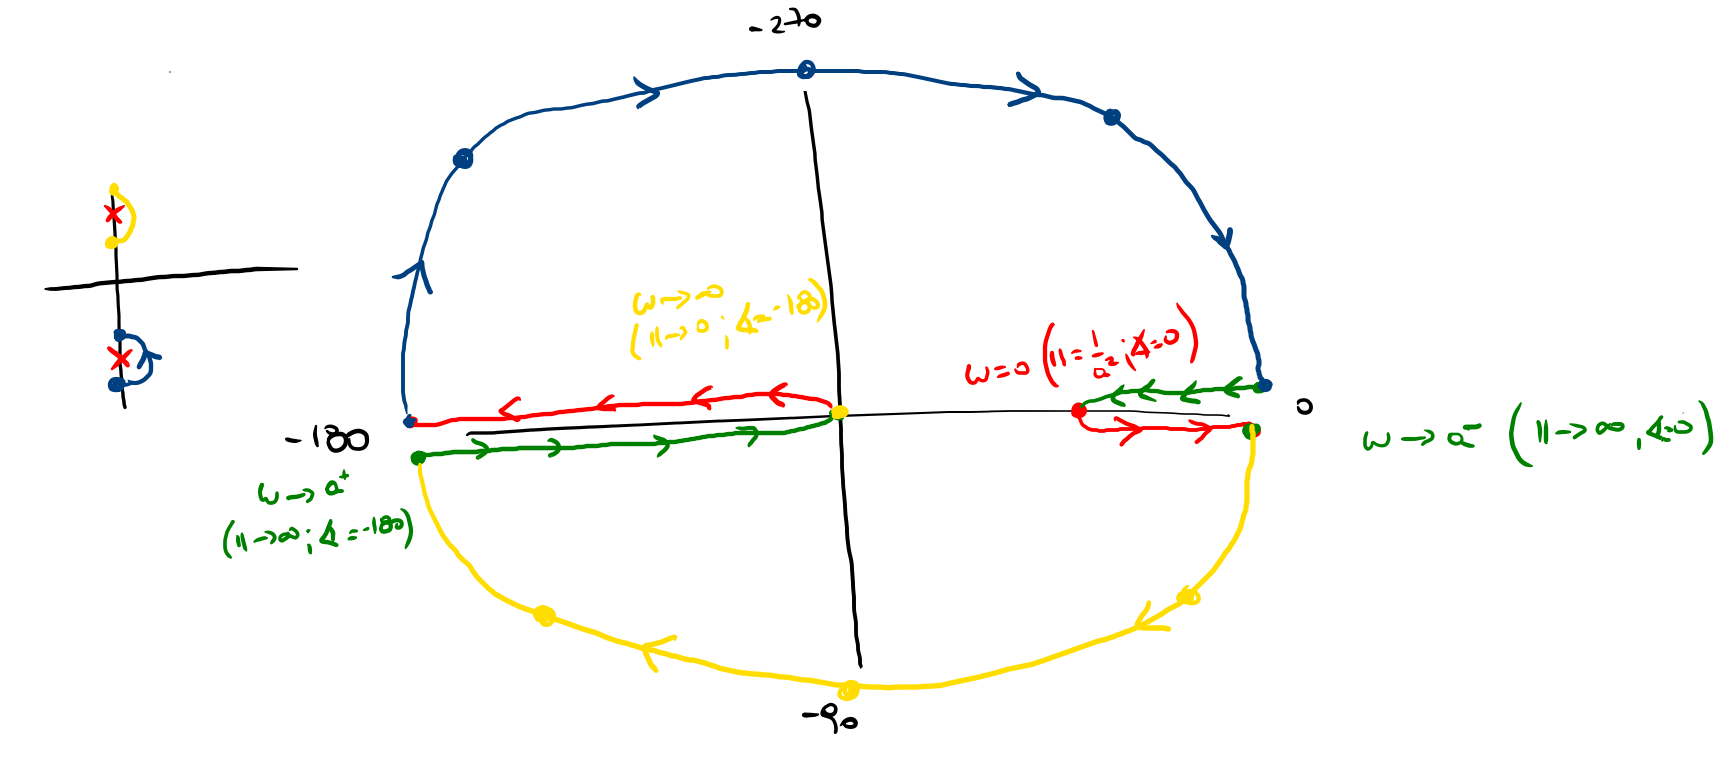 -270
ω→∞
(||→0; ∡=-180)
ω=0 (||=1/a²; ∡=0)
0
-180
ω→a⁻ (||→∞, ∡=0)
ω→a⁺
(||→∞; ∡=-180)
-90